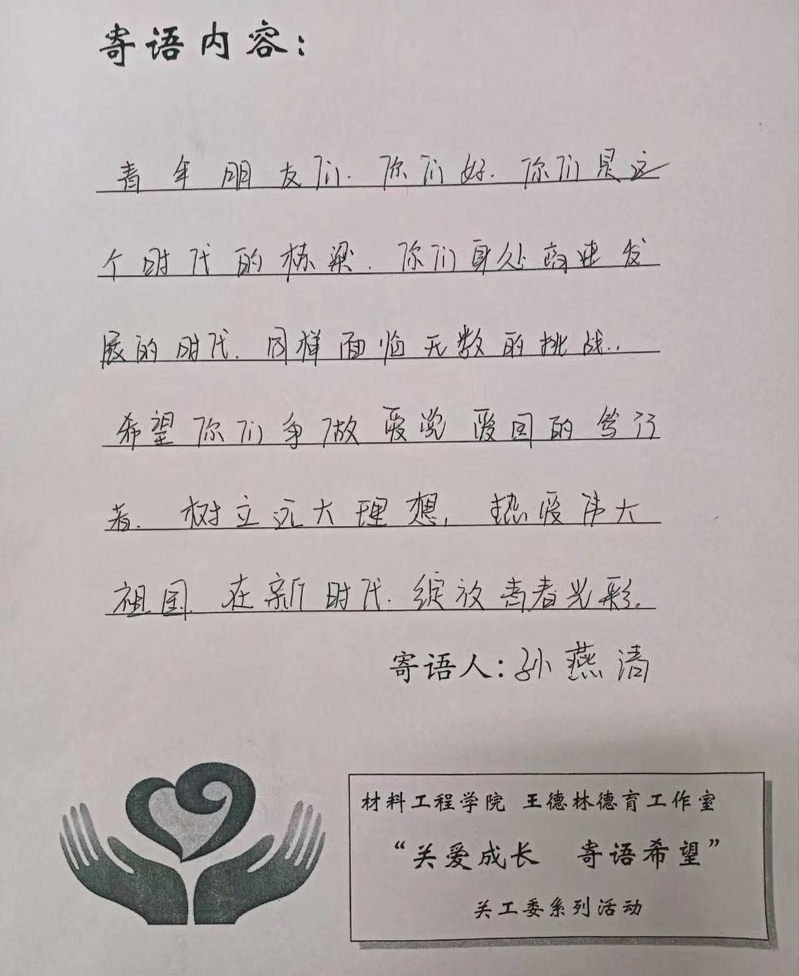 寄语内容：
青年朋友们.你们好.你们是这
个时代的栋梁.你们身处高速发
展的时代.同样面临无数的挑战..
希望你们争做爱党爱国的笃行
者.树立远大理想,热爱伟大
祖国.在新时代.绽放青春光彩.
寄语人：孙燕清
材料工程学院 王德林德育工作室
“关爱成长 寄语希望”
关工委系列活动